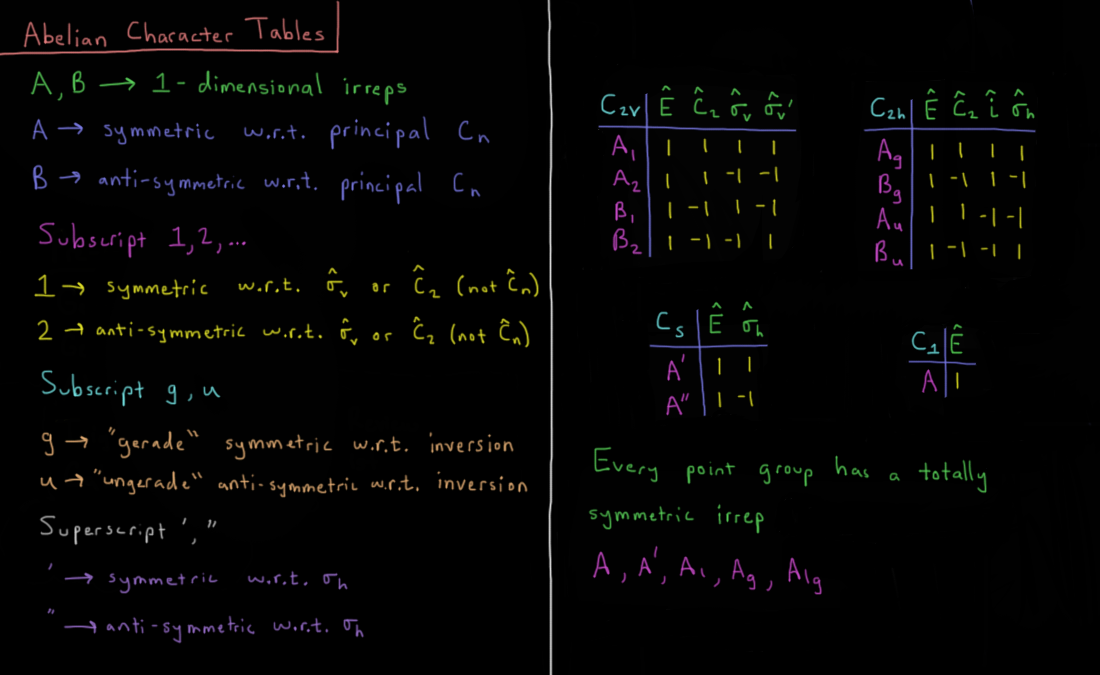 Abelian Character Tables
A, B → 1-dimensional irreps
A → symmetric w.r.t. principal Cn
B → anti-symmetric w.r.t. principal Cn
Subscript 1,2,...
1 → symmetric w.r.t. σ̂v or Ĉ2 (not Ĉn)
2 → anti-symmetric w.r.t. σ̂v or Ĉ2 (not Ĉn)
Subscript g, u
g → "gerade" symmetric w.r.t. inversion
u → "ungerade" anti-symmetric w.r.t. inversion
Superscript ', "
' → symmetric w.r.t. σh
" → anti-symmetric w.r.t. σh
C2v Ê Ĉ2 σ̂v σ̂v'
A1 1 1 1 1
A2 1 1 -1 -1
B1 1 -1 1 -1
B2 1 -1 -1 1
C2h Ê Ĉ2 î σ̂h
Ag 1 1 1 1
Bg 1 -1 1 -1
Au 1 1 -1 -1
Bu 1 -1 -1 1
Cs Ê σ̂h
A' 1 1
A" 1 -1
C1 Ê
A 1
Every point group has a totally
symmetric irrep
A, A', A1, Ag, A1g